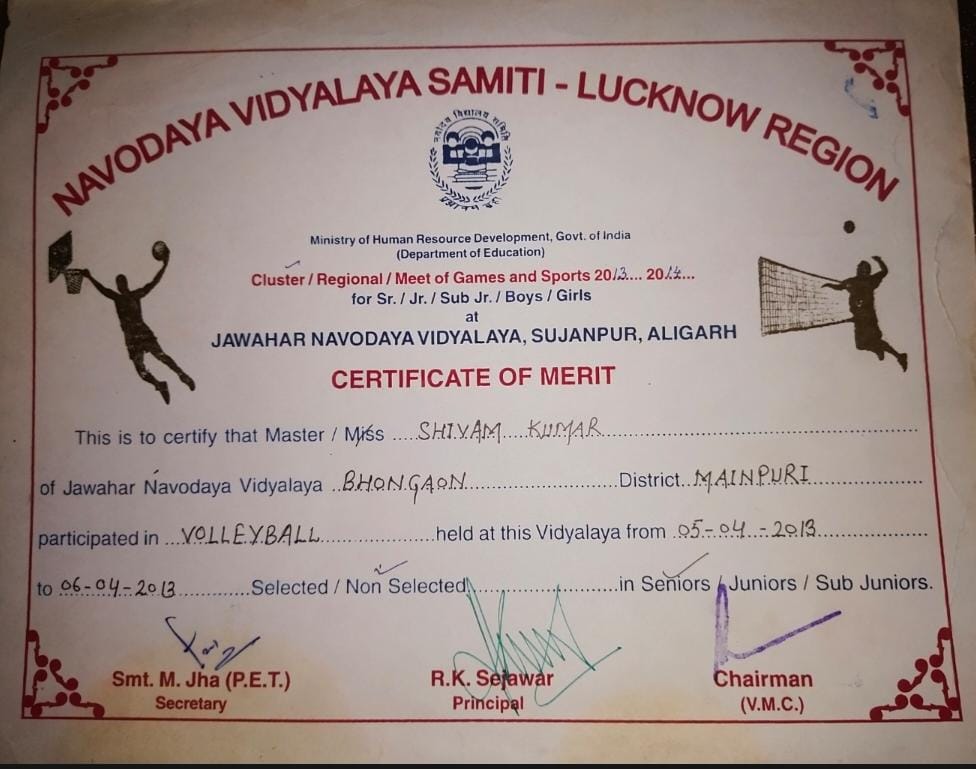 NAVODAYA VIDYALAYA SAMITI - LUCKNOW REGION
नवोदय विद्यालय समिति
प्रज्ञानम ब्रह्म
Ministry of Human Resource Development, Govt. of India
(Department of Education)
Cluster / Regional / Meet of Games and Sports 2013.... 2014....
for Sr. / Jr. / Sub Jr. / Boys / Girls
at
JAWAHAR NAVODAYA VIDYALAYA, SUJANPUR, ALIGARH
CERTIFICATE OF MERIT
This is to certify that Master / Miss .....SHIVAM....KUMAR..........
of Jawahar Navodaya Vidyalaya ..BHONGAON..........District..MAINPURI..........
participated in ...VOLLEYBALL..........held at this Vidyalaya from .05-04-2013..........
to 06-04-2013..........Selected / Non Selected..........in Seniors / Juniors / Sub Juniors.
Smt. M. Jha (P.E.T.) R.K. Sejawar Chairman
Secretary Principal (V.M.C.)